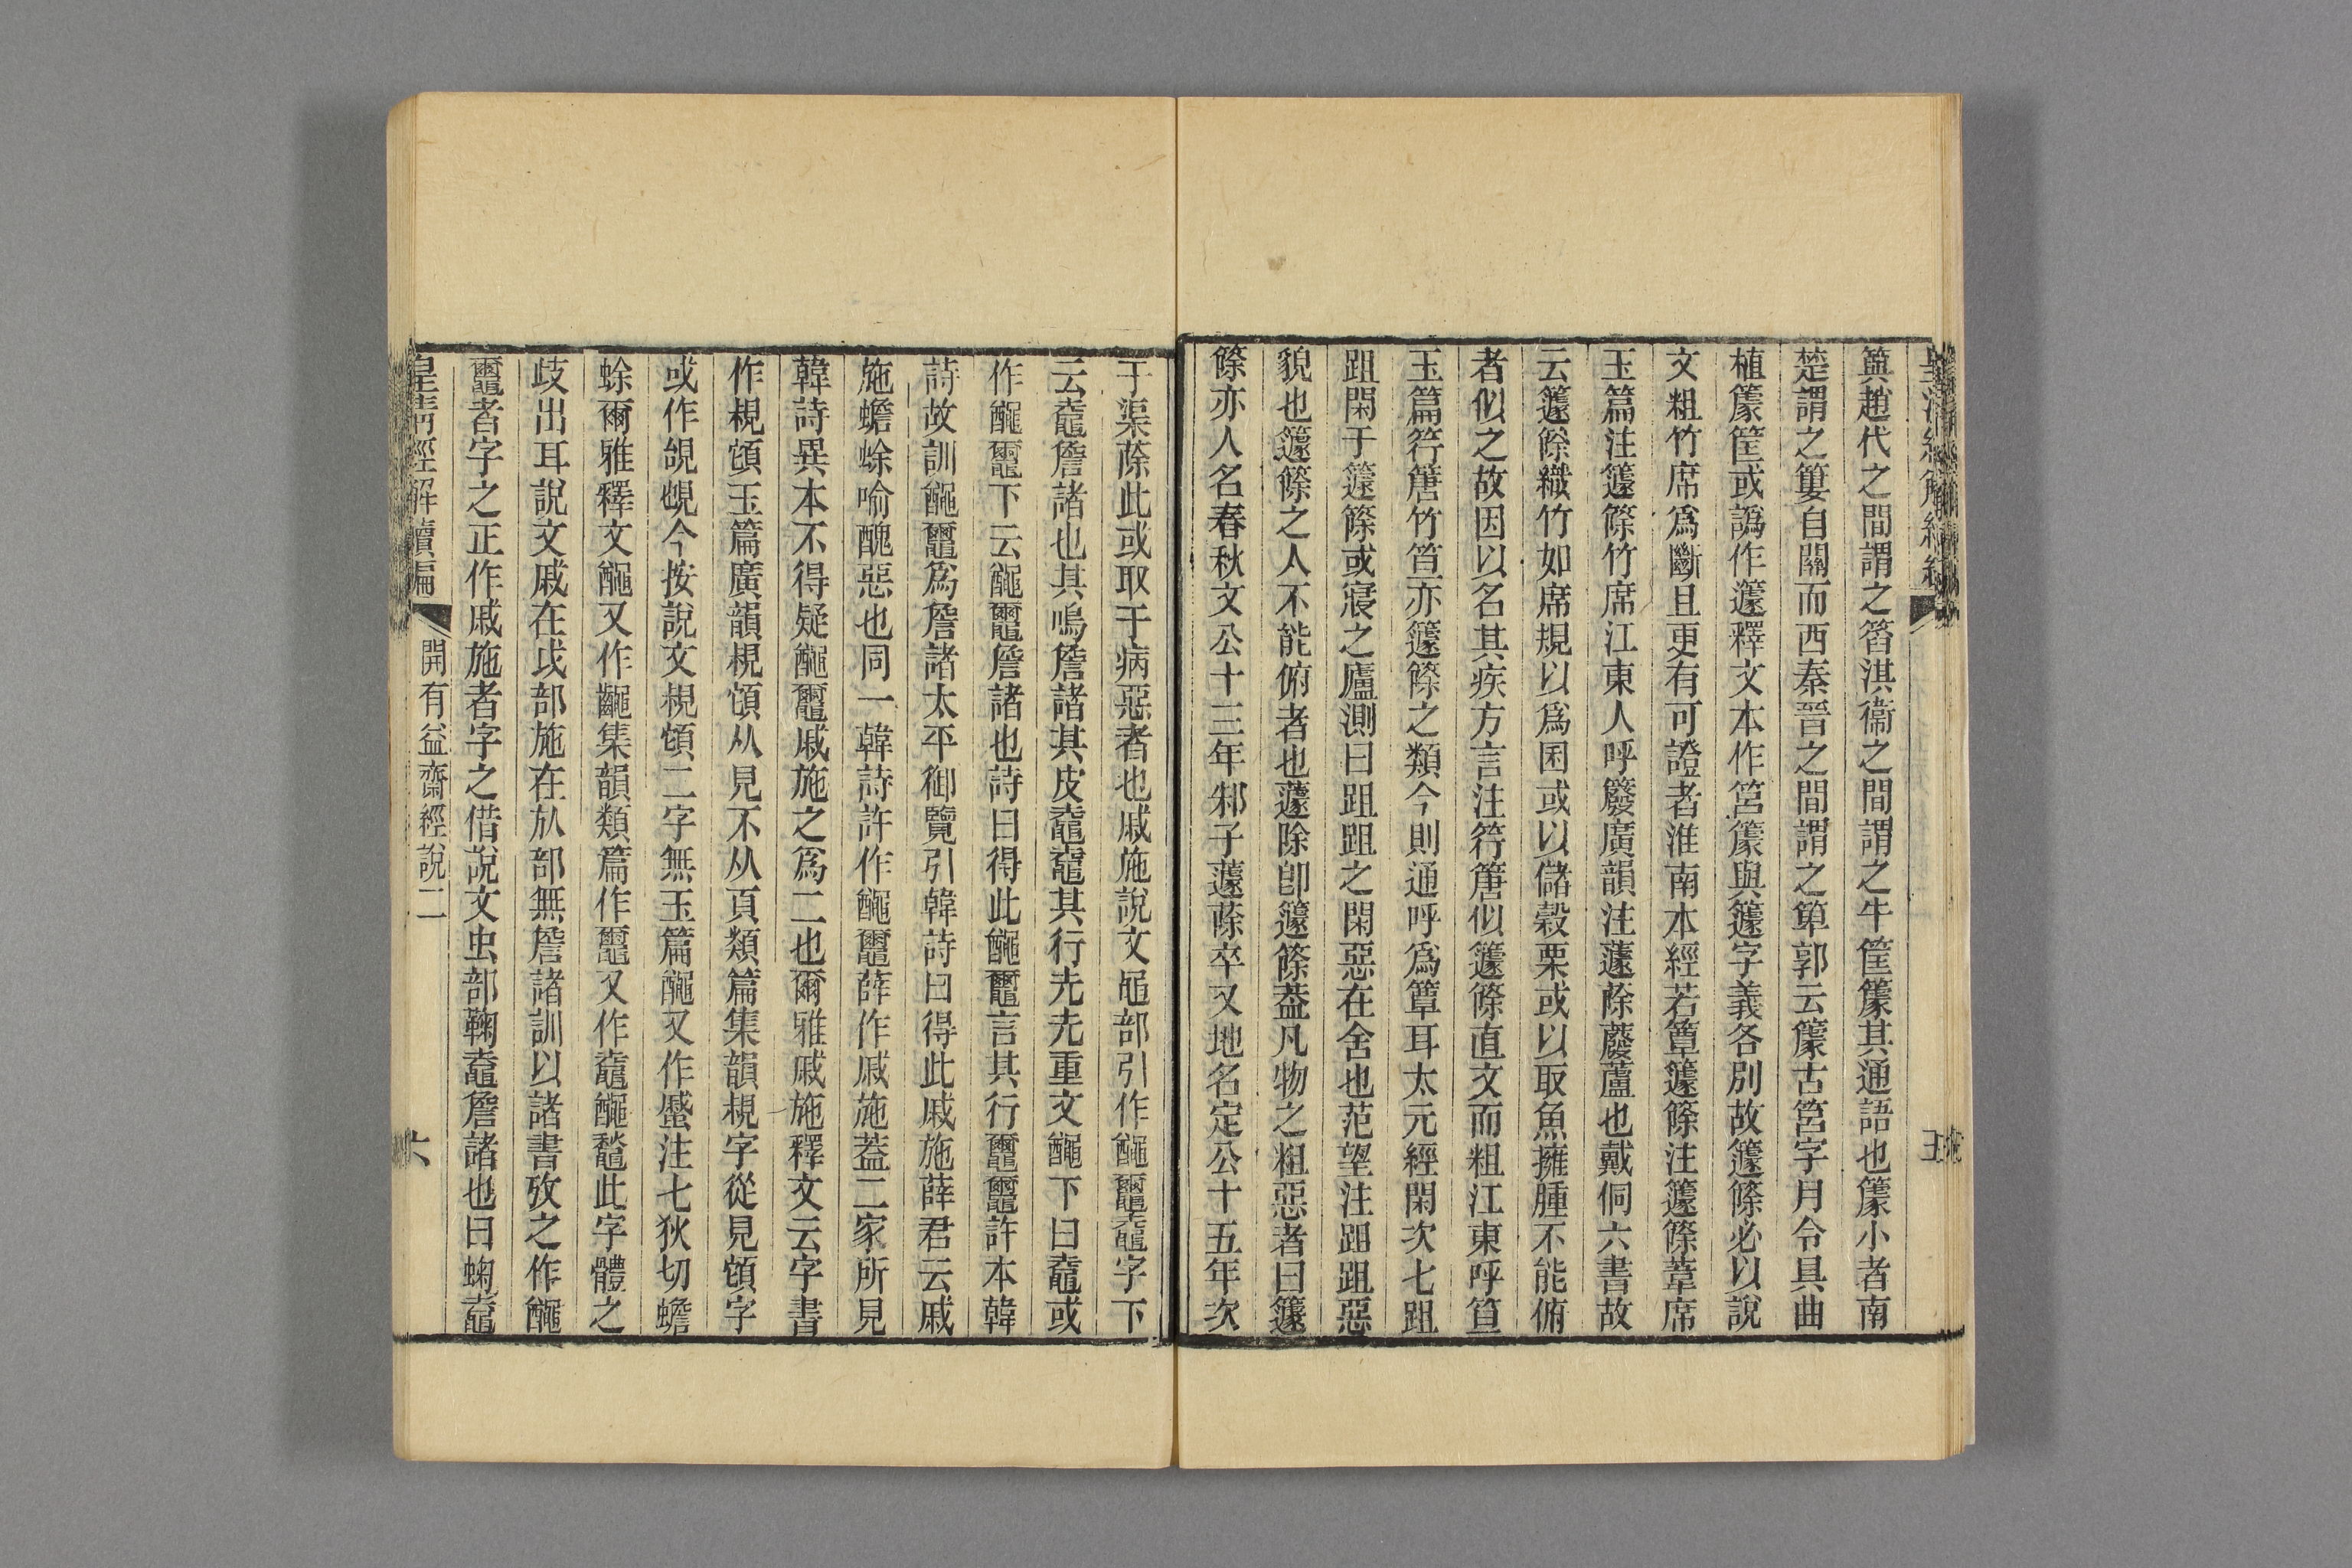 筥趙代之間謂之𥬔淇衞之間謂之牛筐籧其通語也籧小者南
楚謂之簍自關而西秦晉之間謂之箄郭云籧古筥字月令具曲
植籧筐或譌作籧釋文本作筥籧與籧字義各別故籧篨必以說
文粗竹席爲斷且更有可證者淮南本經若簟籧篨注籧篨葦席
玉篇注籧篨竹席江東人呼籧廣韻注蘧蒢蘆也戴侗六書故
云籧篨織竹如席規以爲囷或以儲穀栗或以取魚擁腫不能俯
者似之故因以名其疾方言注符𥱼似籧篨直文而粗江東呼笪
玉篇符𥱼竹笪亦籧篨之類今則通呼爲簟耳太元經閑次七跙
跙閑于籧篨或寢之廬測曰跙跙之閑惡在舍也范望注跙跙惡
貌也籧篨之人不能俯者也蘧除卽籧篨葢凡物之粗惡者曰籧
篨亦人名春秋文公十三年邾子蘧蒢卒又地名定公十五年次
于渠蒢此或取于病惡者也戚施說文黽部引作𪓰𪓿𪓰字下
云𪓰詹諸也其鳴詹諸其皮𪓰𪓰其行𡴆𡴆重文𪓿下曰𪓰或
作𪓿下云𪓿詹諸也詩曰得此𪓿言其行許本韓
詩故訓𪓿爲詹諸太平御覽引韓詩曰得此戚施薛君云戚
施蟾蜍喻醜惡也同一韓詩許作𪓿薛作戚施葢二家所見
韓詩異本不得疑𪓿戚施之爲二也爾雅戚施釋文云字書
作規䫌玉篇廣韻規䫌从見不从頁類篇集韻規字從見䫌字
或作覘今按說文規䫌二字無玉篇又作蟗注七狄切蟾
蜍爾雅釋文又作集韻類篇作又作此字體之
歧出耳說文戚在戉部施在㫃部無詹諸訓以諸書攷之作
者字之正作戚施者字之借說文虫部𧒰𪓰詹諸也曰蜠𪓰
皇清經解續編
開有益齋經說二
六